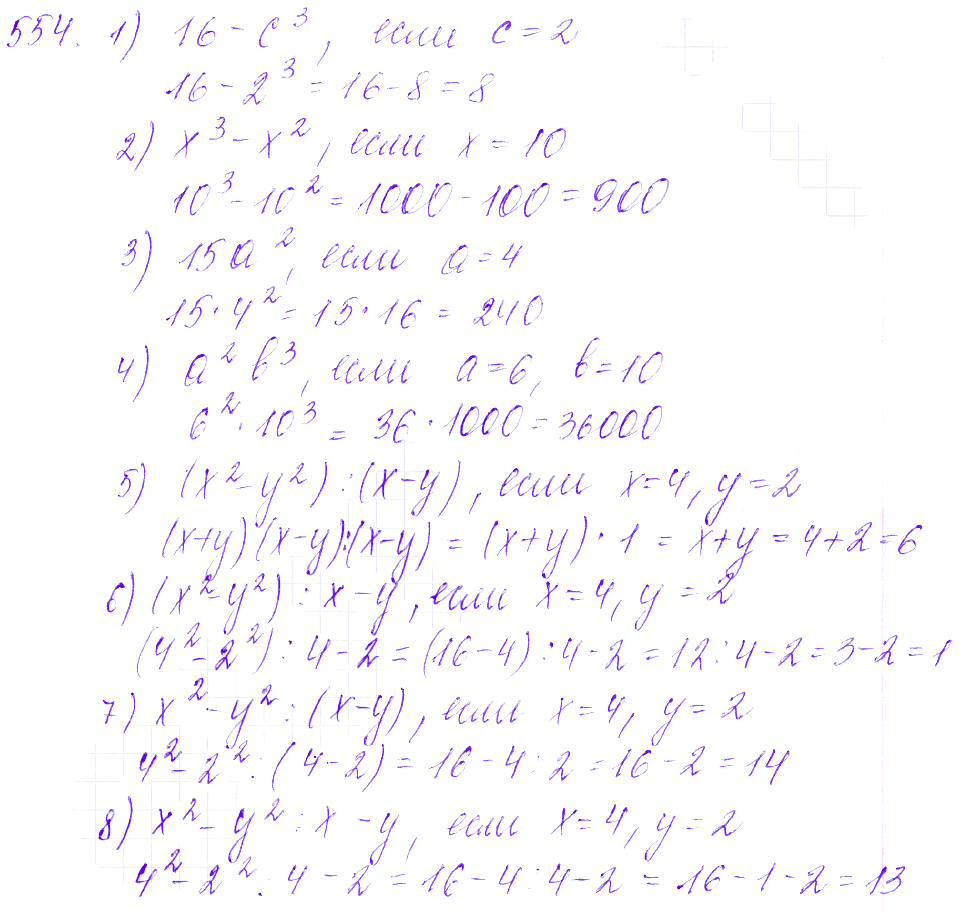 554. 1) 16 - c³, если c = 2
16 - 2³ = 16 - 8 = 8
2) x³ - x², если x = 10
10³ - 10² = 1000 - 100 = 900
3) 15a², если a = 4
15 · 4² = 15 · 16 = 240
4) a² b³, если a = 6, b = 10
6² · 10³ = 36 · 1000 = 36000
5) (x² - y²) : (x - y), если x = 4, y = 2
(x + y)(x - y) : (x - y) = (x + y) · 1 = x + y = 4 + 2 = 6
6) (x² - y²) : x - y, если x = 4, y = 2
(4² - 2²) : 4 - 2 = (16 - 4) : 4 - 2 = 12 : 4 - 2 = 3 - 2 = 1
7) x² - y² : (x - y), если x = 4, y = 2
4² - 2² : (4 - 2) = 16 - 4 : 2 = 16 - 2 = 14
8) x² - y² : x - y, если x = 4, y = 2
4² - 2² : 4 - 2 = 16 - 4 : 4 - 2 = 16 - 1 - 2 = 13